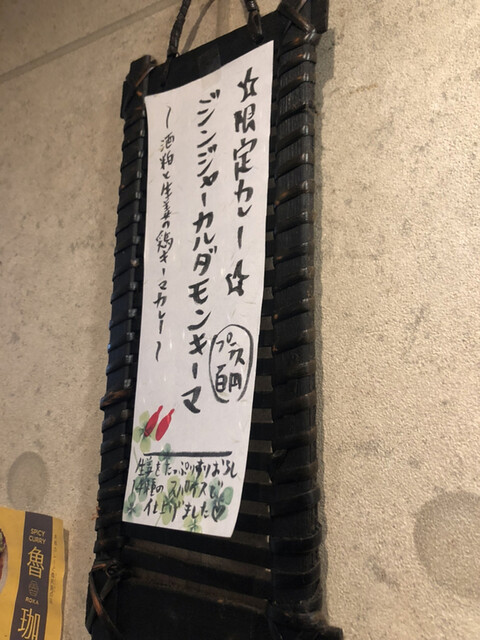 ☆限定カレー☆
ジンジャーカルダモンキーマ
プラス
百円
〜酒粕と生姜の鶏キーマカレー〜
生姜をたっぷりすりおろし
14種のスパイスで
仕上げました♡
SPICY
CURRY
魯
ROKA
珈